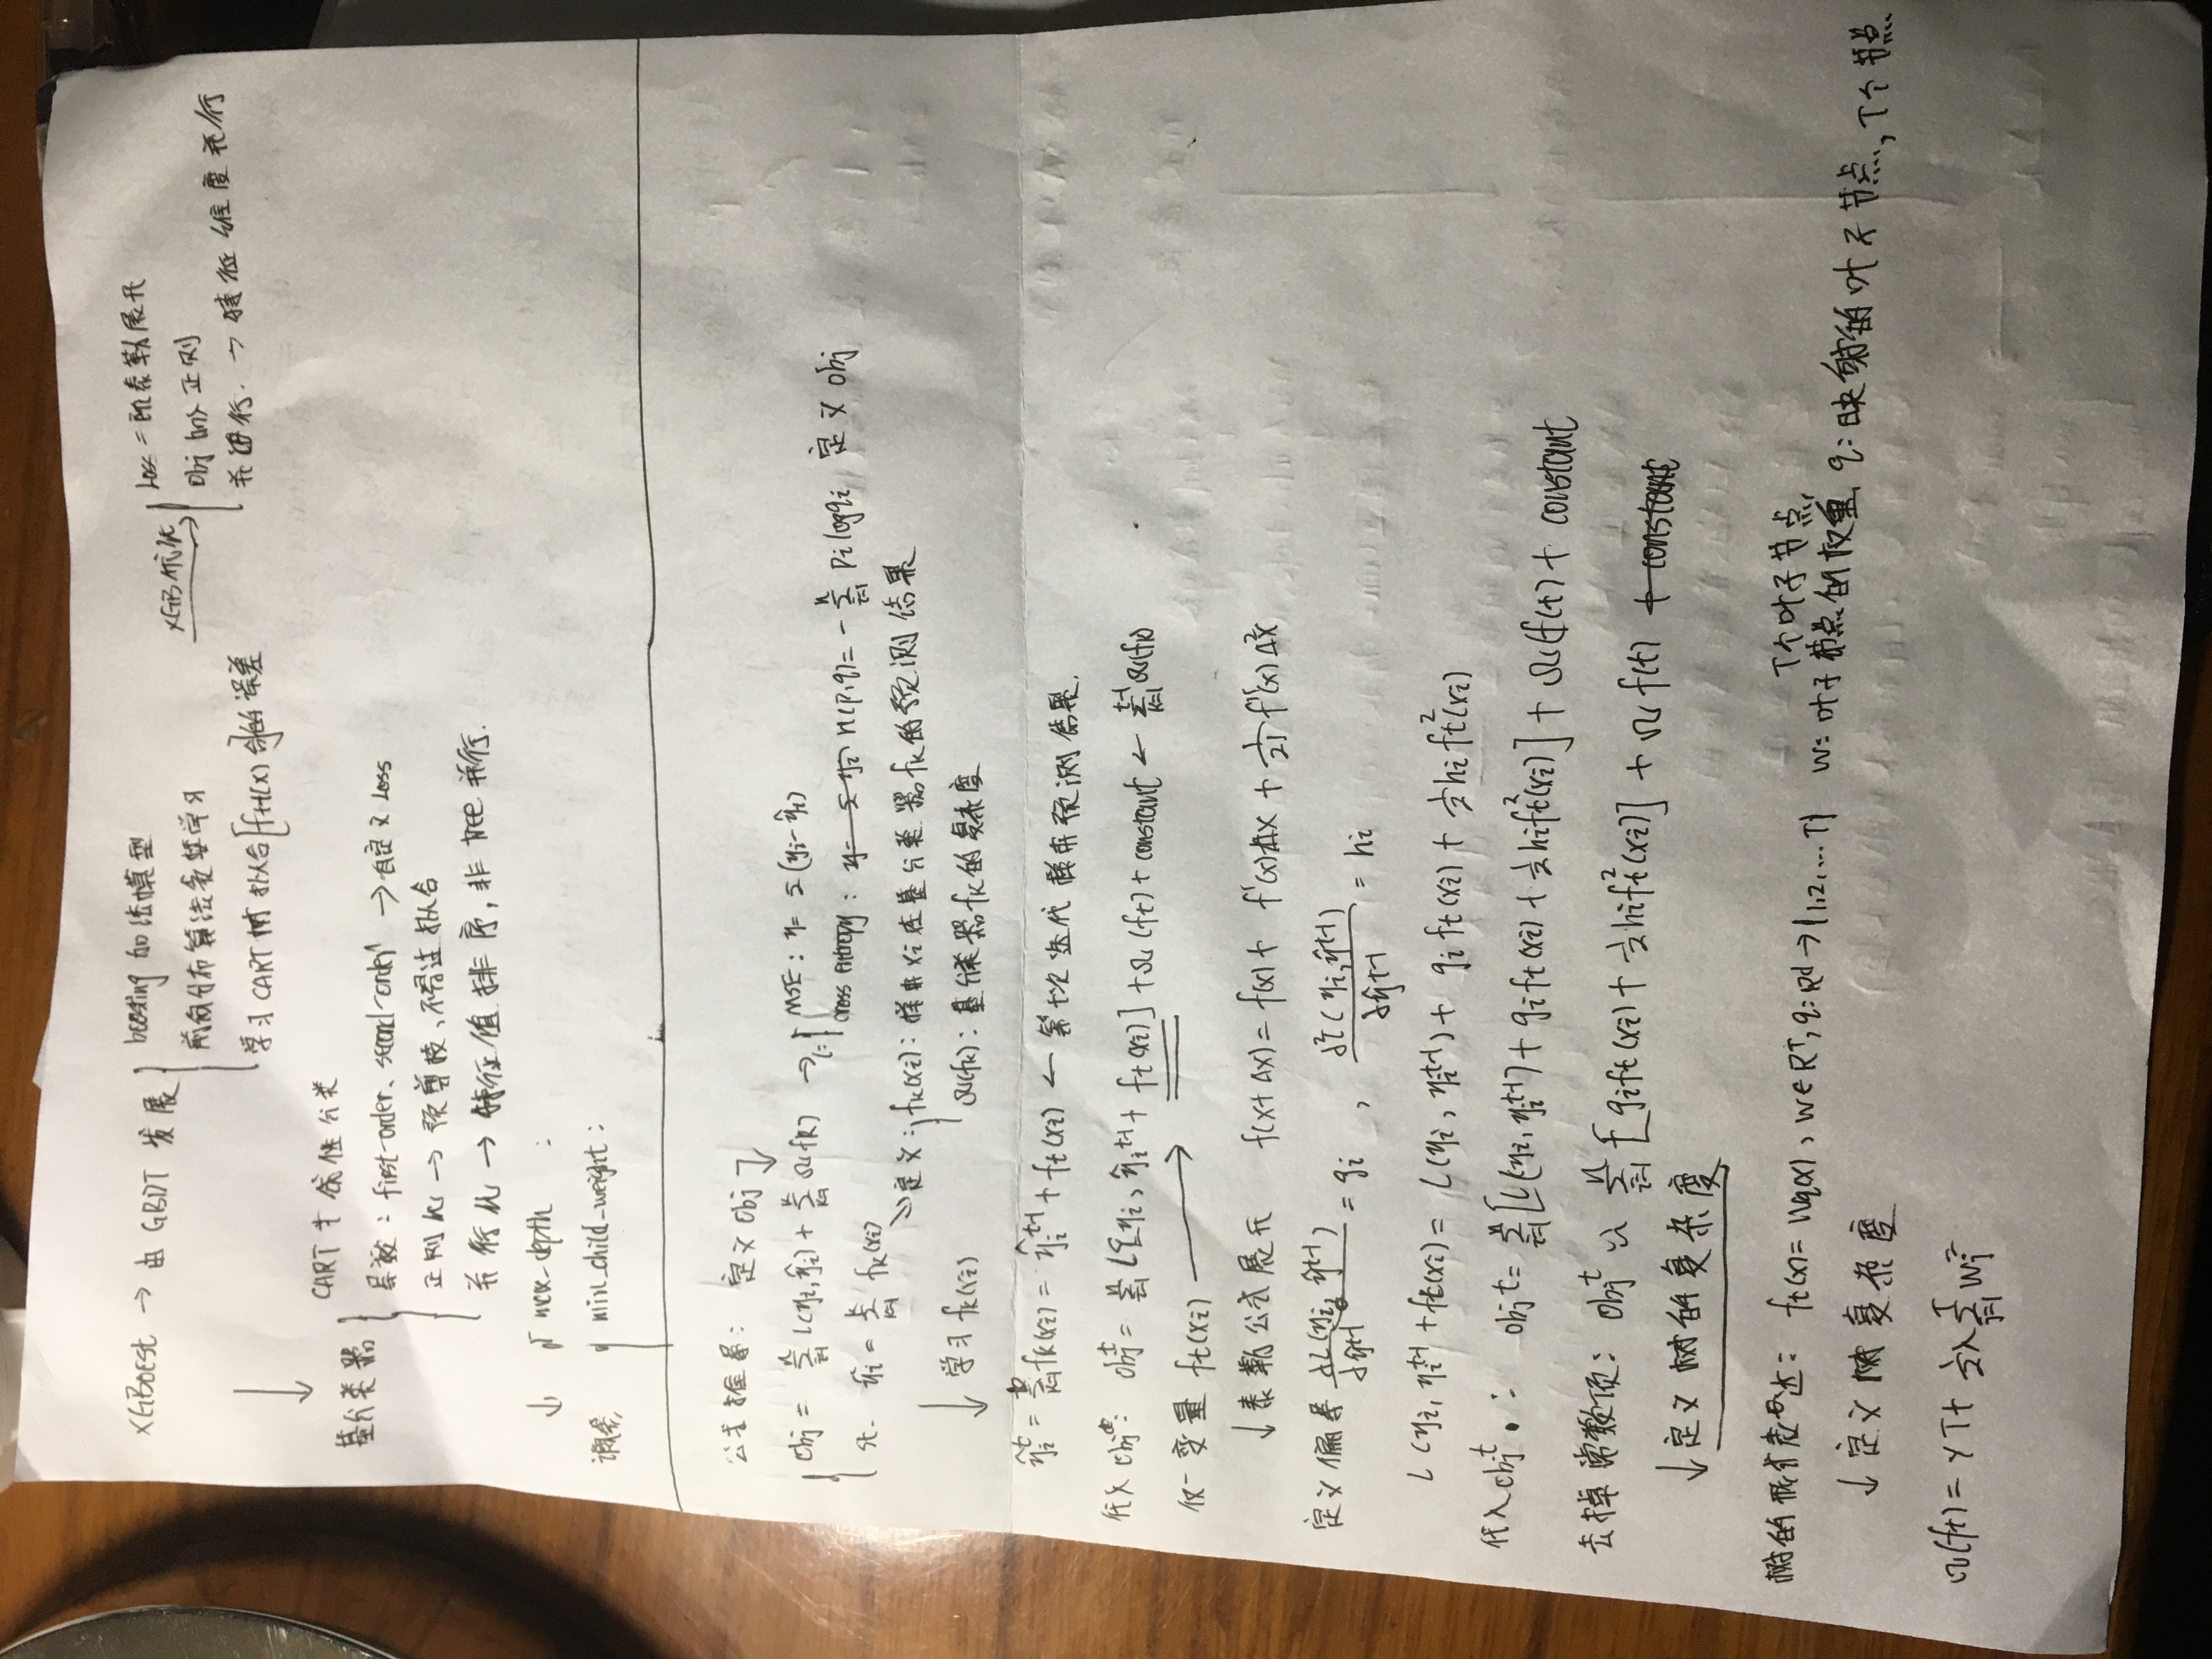 XGBoost → 由 GBDT 发展
boosting 加法模型
前向分布算法多轮学习
学习 CART 树拟合[ft-1(x) 合]的误差
XGB优化 →
Loss 二阶泰勒展开
Obj 加入正则
并进行. → 特征维度并行
↓
基分类器
CART 或 线性分类
导数: first-order、second-order → 自定义 Loss
正则化 → 预剪枝、不易过拟合
并行化 → 特征值排序, 非 tree 并行.
↓
调参
max_depth :
min_child_weight :
公式推导: 定义 Obj
Obj = Σ(i=1..n) L(yi, ŷi) + Σ(k=1..K) Ω(fk) → L=
MSE: y= Σ(yi - ŷi)
cross entropy: H(p,q)= - Σ(i=1..n) Pi log qi 定义 obj
st. ŷi = Σ(k=1..K) fk(xi)
定义: fk(xi): 样本 xi 在基分类器 fk 的预测结果
Ω(fk): 基分类器 fk 的复杂度
↓ 学习 fk(xi)
ŷi^t = Σ fk(xi) = ŷi^t-1 + ft(xi) ← 第 t 次迭代样本预测结果.
代入 Obj: Obj^t = Σ(i=1..n) L[yi, ŷi^t-1 + ft(xi)] + Ω(ft) + constant ← Σ(k=1..t-1) Ω(fk)
仅一变量 ft(xi) →
↓ 泰勒公式展开 f(x+Δx) = f(x) + f'(x)Δx + 1/2! f''(x)Δx²
定义偏导 ∂L(yi, ŷ^t-1)/∂ŷ^t-1 = gi , ∂²L(yi, ŷ^t-1)/∂ŷ^t-1 = hi
L(yi, yi^t-1 + ft(xi)) = L(yi, yi^t-1) + gi ft(xi) + 1/2 hi ft²(xi)
代入 Obj^t : Obj^t = Σ(i=1..n) [L(yi, yi^t-1) + gi ft(xi) + 1/2 hi ft²(xi)] + Ω(f(t) + constant
去掉常数项: Obj^t ≃ Σ(i=1..n) [gi ft(xi) + 1/2 hi ft²(xi)] + Ω f(t) + constant
↓ 定义树的复杂度
树的形式表达: ft(x) = Wq(x), w∈R^T, q: R^d → {1,2,...T}
T个叶子节点,
w: 叶子节点的权重, q: 映射的叶子节点, T个节点
↓ 定义树复杂度
Ω(ft) = γT + 1/2 λ Σ(j=1..T) Wj²